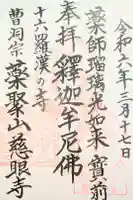 令和六年三月十七日
薬師瑠璃光如来 寳前
奉拝 釋迦牟尼佛
十六羅漢の寺
曹洞宗 薬聚山 慈眼寺